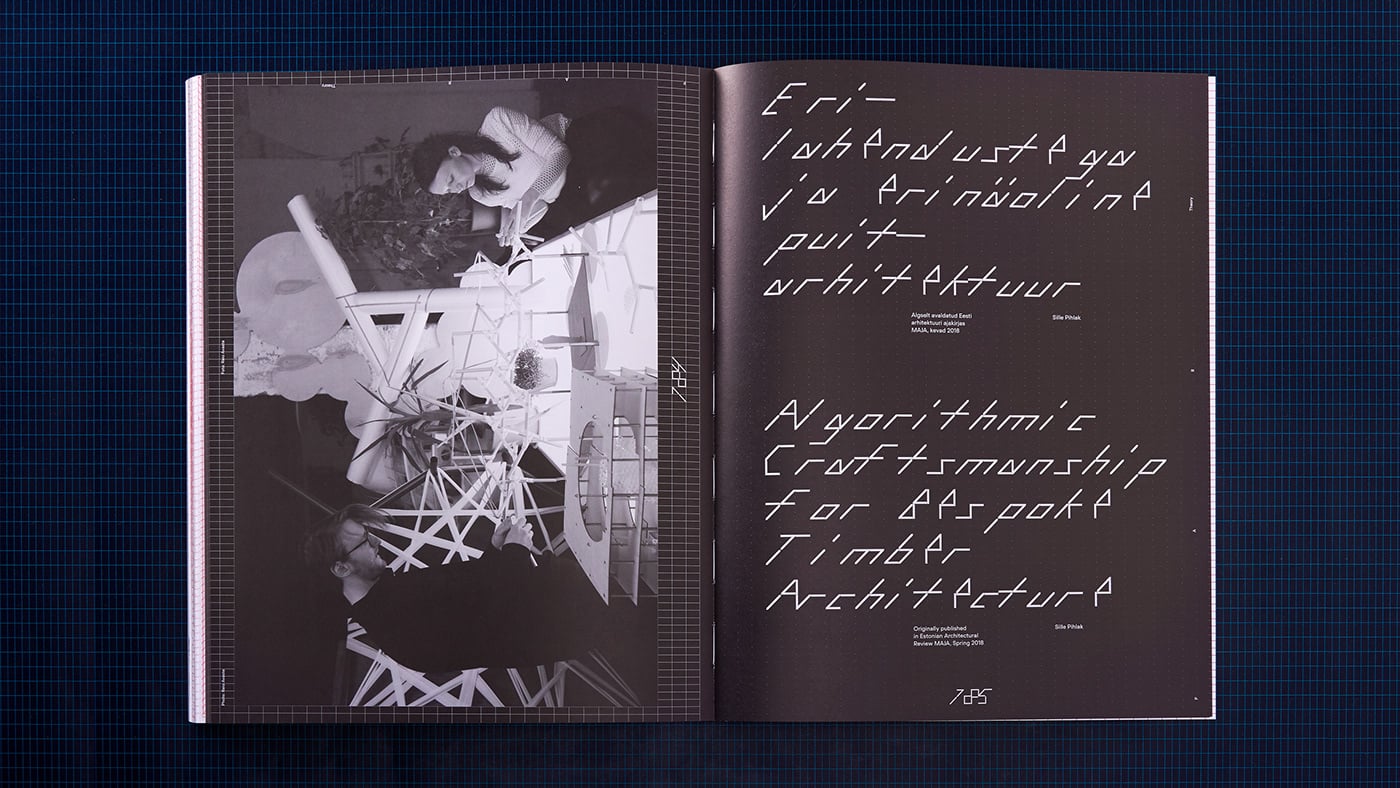 Theory
Eri–
lahendustega
ja erinäoline
puit–
arhitektuur
Algselt avaldatud Eesti
arhitektuuri ajakirjas
MAJA, kevad 2018
Sille Pihlak
Algorithmic
Craftsmanship
for Bespoke
Timber
Architecture
Originally published
in Estonian Architectural
Review MAJA, Spring 2018
Sille Pihlak
Theory
E
A
P